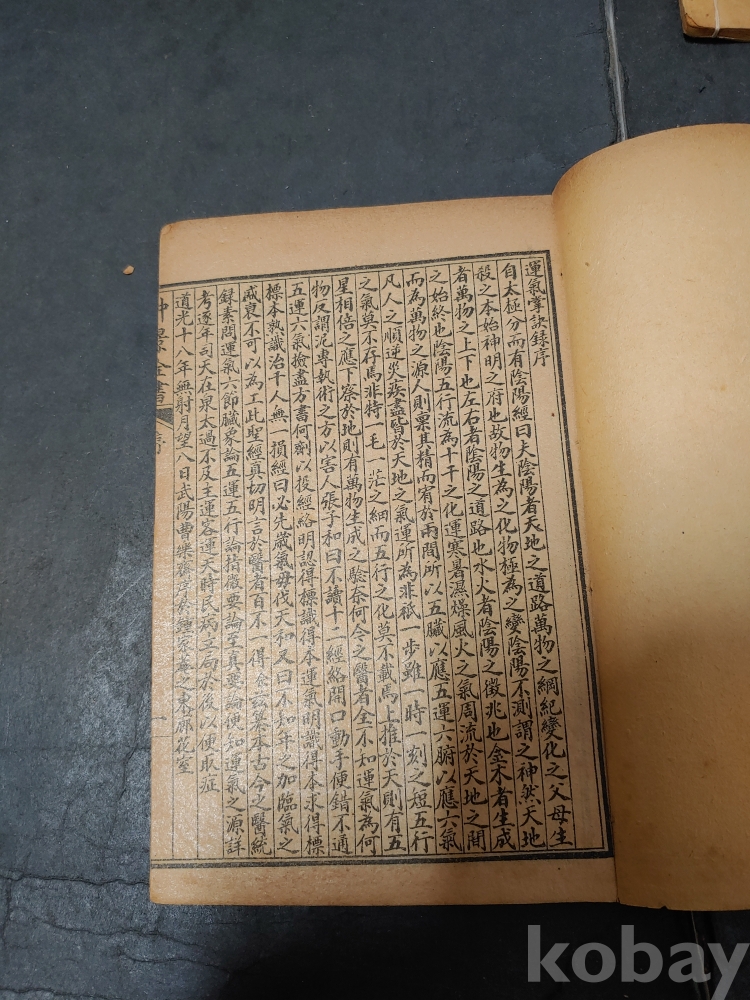 運氣掌訣錄序
自太極分而有陰陽經曰夫陰陽者天地之道路萬物之綱紀變化之父母生
殺之本始神明之府也故物生為之化物極為之變陰陽不測謂之神然天地
者萬物之上下也左右者陰陽之道路也水火者陰陽之徵兆也金木者生成
之始終也陰陽五行流為十干之化運寒暑濕燥風火之氣周流於天地之間
而為萬物之源人則稟其精而宥於兩間所以五臟以應五運六腑以應六氣
凡人之順逆災疾盡皆於天地之氣運所為非祇一步雖一時一刻之短五行
之氣莫不存焉非特一毛一茫之細而五行之化莫不載焉上推於天則有五
星相倍之應下察於地則有萬物生成之驗奈何今之醫者全不知運氣為何
物反謂泥專執術之方以害人張子和曰不讀十二經絡開口動手便錯不通
五運六氣撿盡方書何劑以投經絡明認得標識得本運氣明識得本求得標
標本熟識治千人無一損經曰必先歲氣毋伐天和又曰不知年之加臨氣之
盛衰不可以為工此聖經真切明言於醫者百不一得余茲纂本古今之醫統
録素問運氣六節臟象論五運五行論指微要論至真要論便知運氣之源詳
考逐年司天在泉太過不及主運客運天時民病立局於後以便取症
道光十八年無射月望八日武陽曹樂齋序於鍾靈菴之東廂花室
仲景全書
序
一
kobay